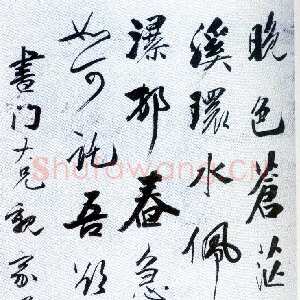 晚色蒼茫
溪環水佩
瀑郁春急
如可託吾
書門大兄親家
Shufawang.CN